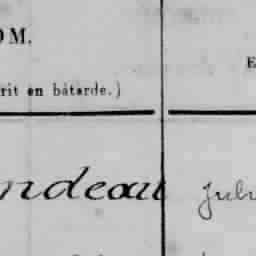 OM.
E
rit en bâtarde.)
ndeau Juli